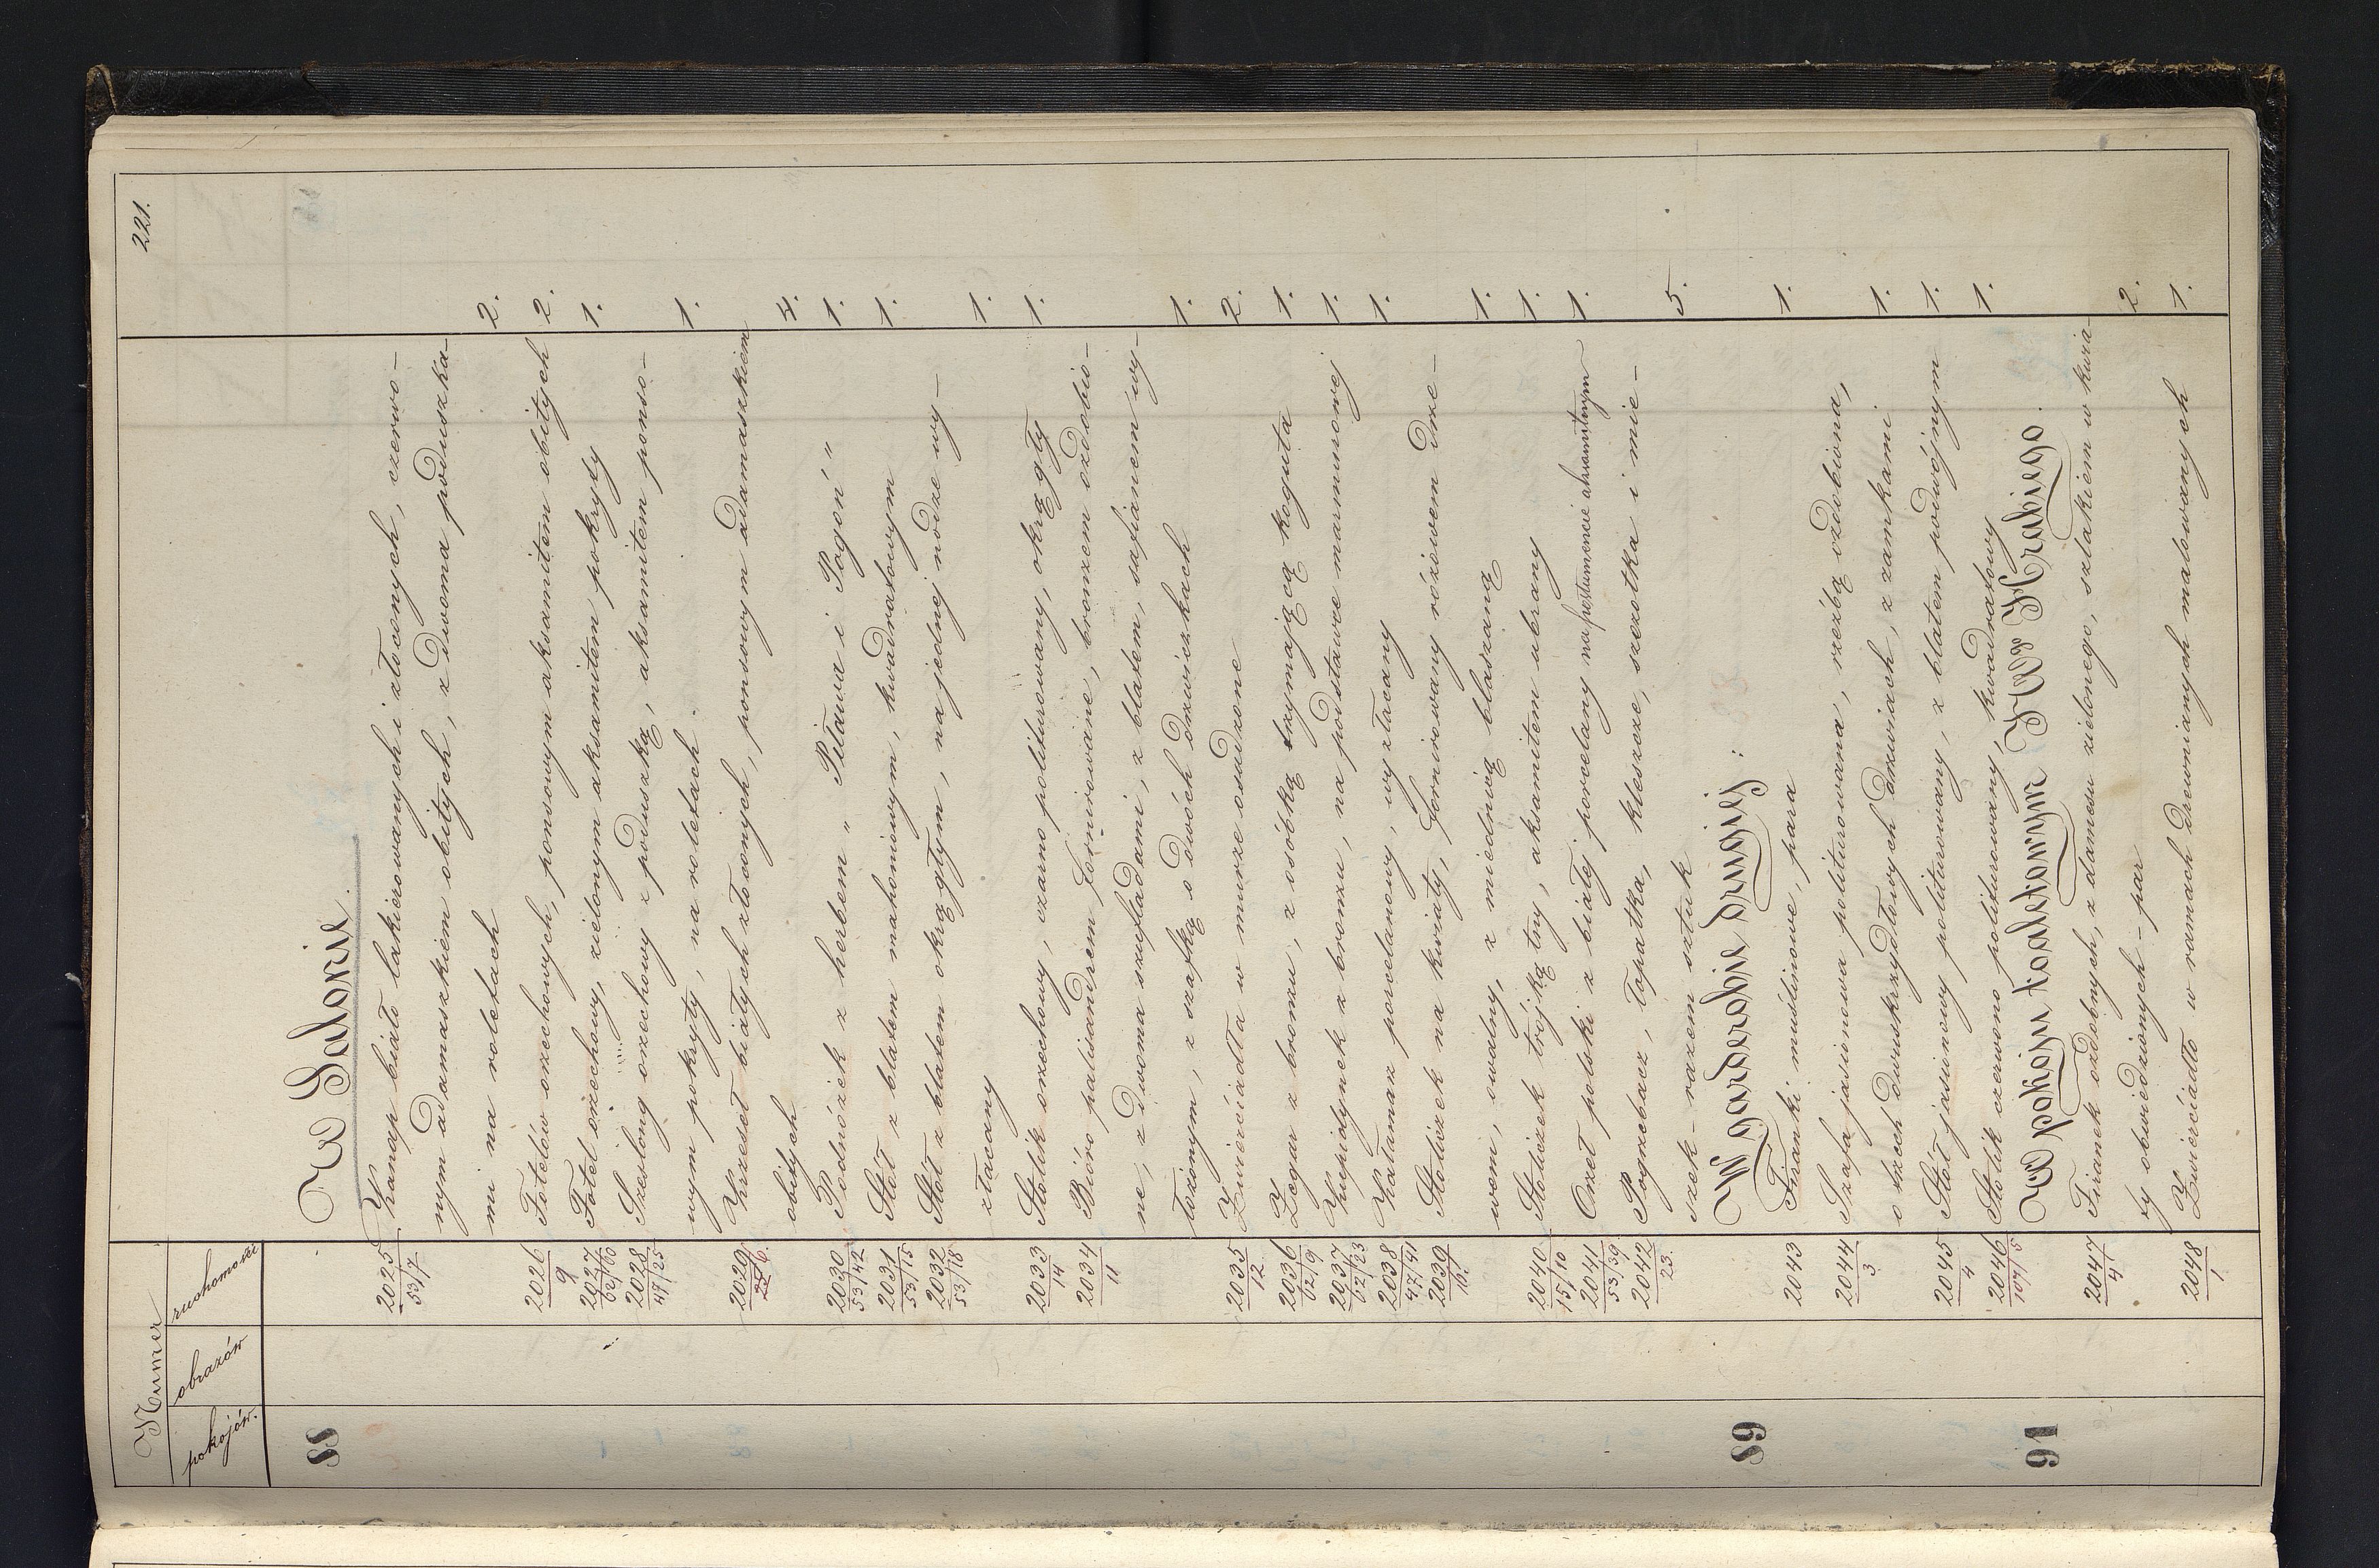 221.
Numer
pokojów. obrazów ruchomości
88 W Salonie.
2025 53/7 Kanap biało lakierowanych i złoconych, czerwo-
nym adamaszkiem obitych, z dwoma poduszka-
mi na roletach 2.
2026 9 Fotelów orzechowych, ponsowym aksamitem obitych 2.
2027 62/60 Fotel orzechowy, zielonym aksamitem pokryty 1.
2028 49/25 Szeslong orzechowy z poduszką, aksamitem ponso-
wym pokryty, na roletach. 1.
2029 Krzeseł białych złoconych, ponsowym adamaszkiem
obitych 4.
2030 53/42 Podnóżek z herbem „Pilawa i Pogoń" 1.
2031 53/15 Stół z blatem mahoniowym, kwadratowym 1.
2032 53/18 Stół z blatem okrągłym, na jednej nodze wy-
złacany 1.
2033 14 Stolik orzechowy, czarno politurowany, okrągły 1.
2034 11 Bióro palisandrem fornirowane, bronzem ozdobio-
ne, z dwoma szufladami, z blatem, safianem wy-
łożonym, z szafką o dwóch drzwiczkach 1.
2035 12 Zwierciadła w murze osadzone 2.
2036 62/9 Zegar z bronzu, z osóbką trzymającą koguta 1.
2037 62/23 Kupidynek z bronzu, na podstawie marmurowej 1.
2038 47/41 Kałamarz porcelanowy, wyzłacany 1.
2039 16. Stoliczek na kwiaty, fornirowany różowem drze-
wem, owalny, z miednicą blaszaną 1.
2040 15/10 Stoliczek trójkątny, aksamitem ubrany 1.
2041 53/39 Orzeł polski z białej porcelany na postumencie aksamitnym 1.
2042 23. Pogrzebacz, łopatka, kleszcze, szczotka i mie-
szek – razem sztuk 5.
89 W garderobie drugiéj:
2043 Firanki muślinowe, para 1.
2044 3 Szafa jasionowa politurowana, rzeźbą ozdobiona,
o trzech dwuskrzydłowych drzwiach, z zamkami 1.
2045 4 Stół jasionowy politurowany, z blatem podwójnym 1.
2046 107/5 Stolik czerwono politurowany, kwadratowy 1.
91 W pokoju toaletowym JW Hrabiego.
2047 4 Firanek ozdobnych, z damesu zielonego, szlakiem w kwia-
ty obwiedzionych – par 2.
2048 1 Zwierciadło w ramach drewnianych malowanych 1.